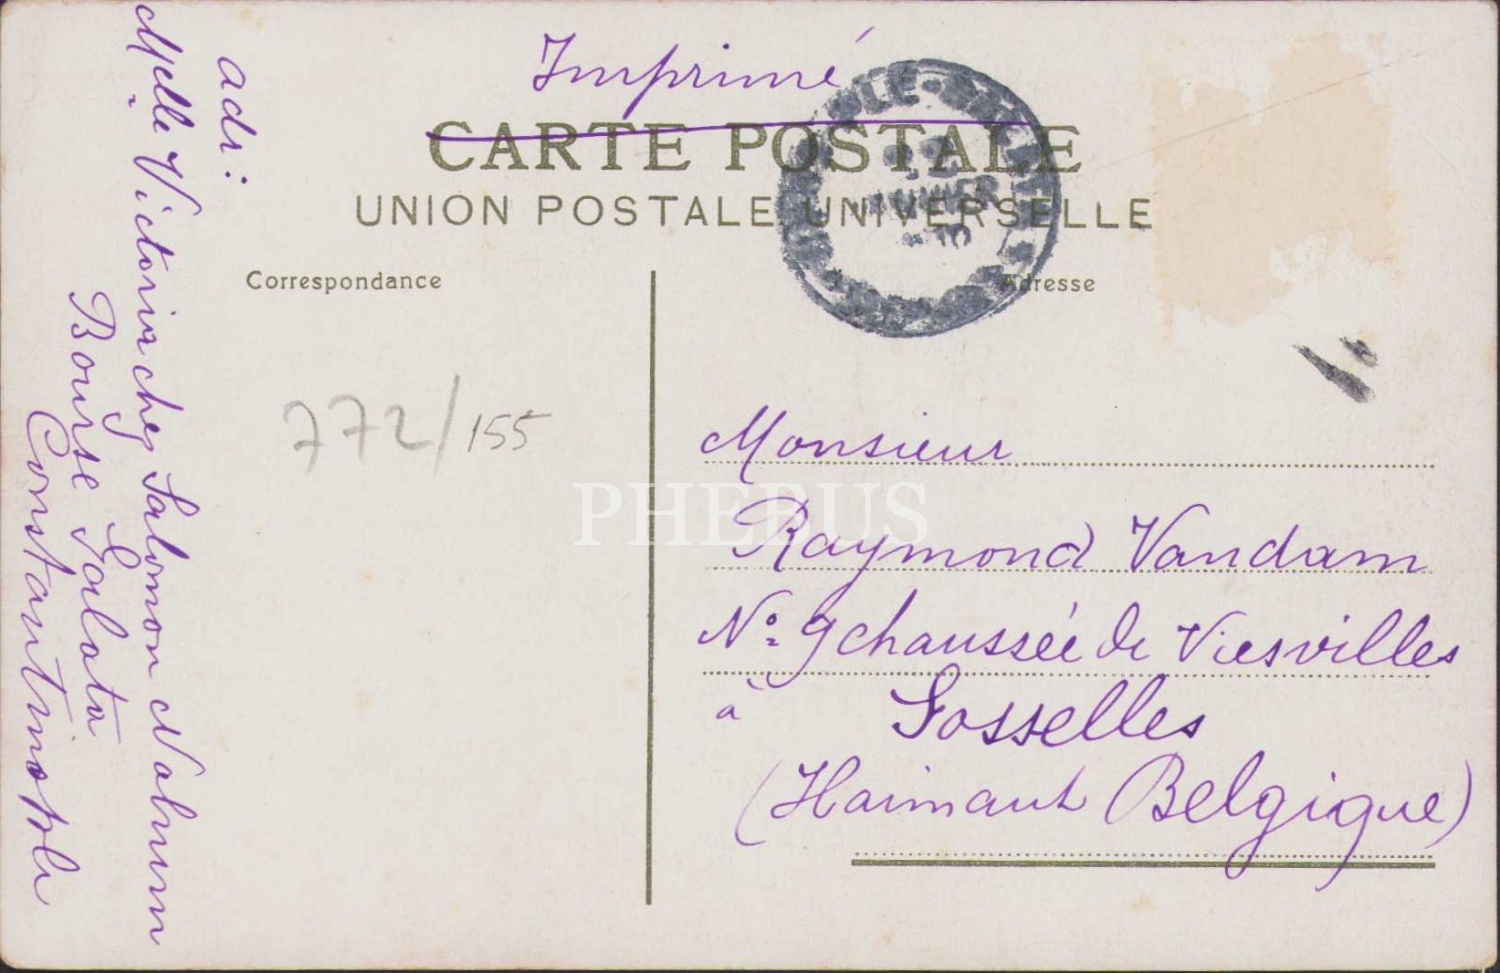 Imprimé
CARTE POSTALE
UNION POSTALE UNIVERSELLE
Correspondance
Adresse
adr:
Melle Victoria chez Salomon Nahum
Bourse Galata
Constantinople
772/155
PHEBUS
Monsieur
Raymond Vandam
No 9 chaussée de Viesvilles
à Gosselles
(Hainaut Belgique)